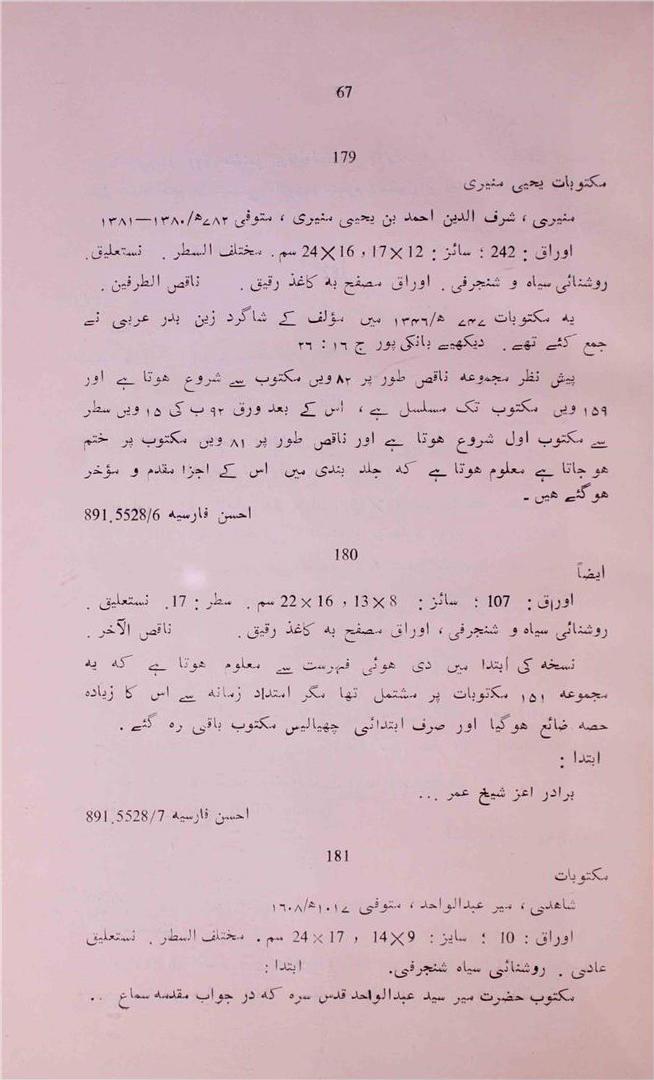 67
179
مکتوبات یحییٰ منیری
منیری ، شرف الدین احمد بن یحییٰ منیری ، متوفی ۷۸۲ھ/۱۳۸۰—۱۳۸۱
اوراق : 242 ؛ سائز : 12×17 ، 16×24 سم . مختلف السطر . نستعلیق.
روشنائی سیاہ و شنجرفی . اوراق مصفح بہ کاغذ رقیق . ناقص الطرفین .
یہ مکتوبات ۷۴۷ ھ/۱۳۴۶ میں مؤلف کے شاگرد زین بدر عربی نے
جمع کئے تھے . دیکھیے بانکی پور ج ۱۶ : ۲۶
پیش نظر مجموعہ ناقص طور پر ۸۲ ویں مکتوب سے شروع ھوتا ہے اور
۱۵۹ ویں مکتوب تک مسلسل ہے ، اس کے بعد ورق ۹۲ ب کی ۱۵ ویں سطر
سے مکتوب اول شروع ھوتا ہے اور ناقص طور پر ۸۱ ویں مکتوب پر ختم
ھو جاتا ہے معلوم ھوتا ہے کہ جلد بندی میں اس کے اجزا مقدم و مؤخر
ھوگئے ھیں ۔
احسن فارسیہ 891.5528/6
180
ایضاً
اوراق : 107 ؛ سائز : 8×13 ، 16×22 سم . سطر : 17. نستعلیق .
روشنائی سیاہ و شنجرفی ، اوراق مصفح بہ کاغذ رقیق . ناقص الآخر .
نسخہ کی ابتدا میں دی ھوئی فہرست سے معلوم ھوتا ہے کہ یہ
مجموعہ ۱۵۱ مکتوبات پر مشتمل تھا مگر امتداد زمانہ سے اس کا زیادہ
حصہ ضائع ھوگیا اور صرف ابتدائی چھیالیس مکتوب باقی رہ گئے .
ابتدا :
برادر اعز شیخ عمر ...
احسن فارسیہ 891.5528/7
181
مکتوبات
شاھدی ، میر عبدالواحد ، متوفی ۱۰۱۷ھ/۱۶۰۸
اوراق : 10 ؛ سایز : 9×14 ، 17×24 سم . مختلف السطر . نستعلیق
عادی . روشنائی سیاہ شنجرفی. ابتدا :
مکتوب حضرت میر سید عبدالواحد قدس سرہ کہ در جواب مقدمہ سماع ..